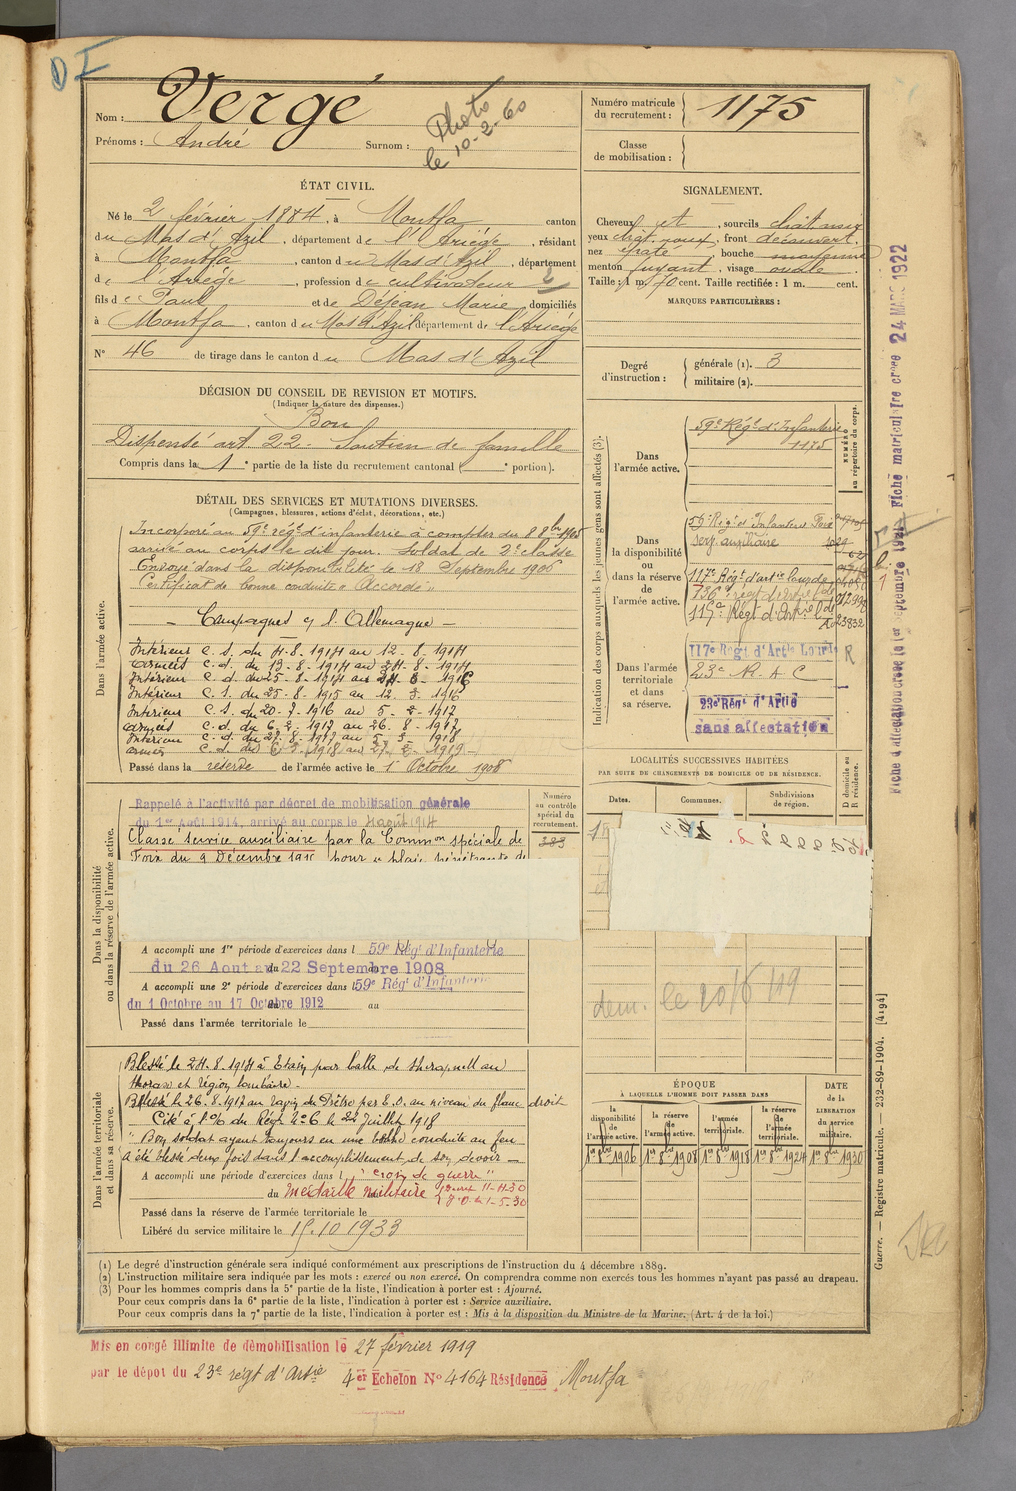 Vergé
Nom :
Prénoms : André Surnom :
Photo
le 10-2-60
Numéro matricule du recrutement : 1175
Classe de mobilisation :
ÉTAT CIVIL.
Né le 2 février 1884, à Montfa canton
du Mas d'Azil, département de l'Ariège, résidant
à Montfa, canton du Mas d'Azil, département
de l'Ariège, profession de cultivateur
fils de Paul et de Dejean Marie, domiciliés
à Montfa, canton du Mas d'Azil département de l'Ariège
N° 46 de tirage dans le canton du Mas d'Azil
SIGNALEMENT.
Cheveux et sourcils chât. noir
yeux chât. roux, front découvert.
nez épaté, bouche moyenne
menton fuyant, visage ovale
Taille : 1 m. 70 cent. Taille rectifiée : 1 m. cent.
MARQUES PARTICULIÈRES :
Degré d'instruction : générale (1). 3
militaire (2).
DÉCISION DU CONSEIL DE REVISION ET MOTIFS.
(Indiquer la nature des dispenses.)
Bon
Dispensé art 22 - Soutien de famille
Compris dans la 1e partie de la liste du recrutement cantonal ( e portion).
DÉTAIL DES SERVICES ET MUTATIONS DIVERSES.
(Campagnes, blessures, actions d'éclat, décorations, etc.)
Dans l'armée active.
Incorporé au 59e rég.t d'infanterie à compter du 8 8bre 1905
arrivé au corps le dit jour. Soldat de 2e classe
Envoyé dans la disponibilité le 18 Septembre 1906
Certificat de bonne conduite « Accordé »
- Campagnes c/ l'Allemagne -
Intérieur C. S. du 4-8-1914 au 12-8-1914
armées C. d. du 13-8-1914 au 24-8-1914
Intérieur C. d. du 25-8-1914 au
Intérieur C. S. du 25-8-1915 au 12.3-1916
Intérieur C. S. du 20-7-1916 au 5-2-1917
armées C. d. du 6-2-1917 au 26-8-1917
Intérieur C. d. du 27-8-1917 au 5-3-1918
armées C. d. du 6-3-1918 au 27-2-1919-
Passé dans la réserve de l'armée active le 1er Octobre 1908
Indication des corps auxquels les jeunes gens sont affectés (3).
NUMÉRO au répertoire du corps.
Dans l'armée active.
59e Rég.t d'Infanterie
1175
Dans la disponibilité ou dans la réserve de l'armée active.
59e Rég.t d'Infanterie Foix
Serv. auxiliaire
117e Rég.t d'art.ie lourde
115e Rég.t d'Art.ie l.de
Dans l'armée territoriale et dans sa réserve.
117e Régt d'Artie Lourde R
23e R. A. C
23e Régt d'Artie
sans affectation
Fiche d'affectation créée le 1er septembre Fiche matriculaire créée 24 MARS 1922
LOCALITÉS SUCCESSIVES HABITÉES
PAR SUITE DE CHANGEMENTS DE DOMICILE OU DE RÉSIDENCE.
D domicile ou R résidence.
Dates. Communes. Subdivisions de région.
dem. le 20/6/19
Dans la disponibilité ou dans la réserve de l'armée active.
Numéro au contrôle spécial du recrutement.
383
Rappelé à l'activité par décret de mobilisation générale
du 1er Août 1914, arrivé au corps le 4 août 1914
Classé service auxiliaire par la Common spéciale de
Foix du 9 Décembre 1915 pour « plaie pénétrante de
A accompli une 1re période d'exercices dans l 59e Régt d'Infanterie
du 26 Aout au 22 Septembre 1908
A accompli une 2e période d'exercices dans l 59e Régt d'Infanterie
du 1 Octobre au 17 Octobre 1912 au
Passé dans l'armée territoriale le
Dans l'armée territoriale et dans sa réserve.
Blessé le 24.8.1914 à Etain par balle de shrapnell au
thorax et région lombaire -
Blessé le 26.8.1917 au ravin du Prêtre par E.O. au niveau du flanc droit
Cité à l'O/ du Régt N° 6 le 22 Juillet 1918
" Bon soldat ayant toujours eu une belle conduite au feu
A été blessé deux fois dans l'accomplissement de son devoir -
A accompli une période d'exercices dans l "croix de guerre"
du Médaille militaire
J.O. du 1-5-30
Passé dans la réserve de l'armée territoriale le
Libéré du service militaire le 15.10 1933
ÉPOQUE
À LAQUELLE L'HOMME DOIT PASSER DANS
DATE de la LIBÉRATION du service militaire.
la disponibilité de l'armée active.
la réserve de l'armée active.
l'armée territoriale.
la réserve de l'armée territoriale.
1er 8bre 1906 1er 8bre 1908 1er 8bre 1918 1er 8bre 1924 1er 8bre 1930
Guerre. — Registre matricule. — 232-89-1904. [4194]
(1) Le degré d'instruction générale sera indiqué conformément aux prescriptions de l'instruction du 4 décembre 1889.
(2) L'instruction militaire sera indiquée par les mots : exercé ou non exercé. On comprendra comme non exercés tous les hommes n'ayant pas passé au drapeau.
(3) Pour les hommes compris dans la 5e partie de la liste, l'indication à porter est : Ajourné.
Pour ceux compris dans la 6e partie de la liste, l'indication à porter est : Service auxiliaire.
Pour ceux compris dans la 7e partie de la liste, l'indication à porter est : Mis à la disposition du Ministre de la Marine. (Art. 4 de la loi.)
Mis en congé illimité de démobilisation le 27 février 1919
par le dépôt du 23e régt d'Artie 4er Echelon N° 4164 Résidence Montfa